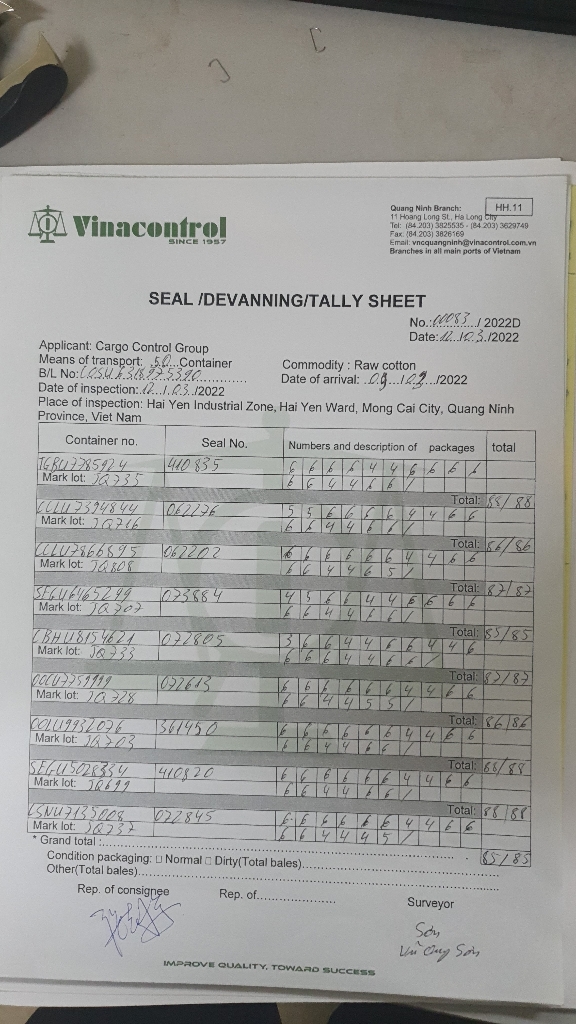 Vinacontrol
SINCE 1957
HH.11
Quang Ninh Branch:
11 Hoang Long St., Ha Long City
Tel: (84.203) 3825535 - (84.203) 3629749
Fax: (84.203) 3826169
Email: vncquangninh@vinacontrol.com.vn
Branches in all main ports of Vietnam
SEAL /DEVANNING/TALLY SHEET
No.: 00083 / 2022D
Date: 12 / 03 /2022
Applicant: Cargo Control Group
Means of transport: 50 Container
Commodity : Raw cotton
B/L No:
Date of arrival: 09 / 03 /2022
Date of inspection: 12 / 03 /2022
Place of inspection: Hai Yen Industrial Zone, Hai Yen Ward, Mong Cai City, Quang Ninh
Province, Viet Nam
Container no. Seal No. Numbers and description of packages total
TGBU7785924 410835 6 6 6 6 4 4 6 6 6 6
Mark lot: JQ735 6 6 4 4 6 6 /
Total: 88/88
CCLU7394844 062276 5 5 6 6 6 6 4 4 6 6
Mark lot: JQ716 6 6 4 4 6 6 /
Total: 86/86
CCLU7866895 062202 6 6 6 6 6 6 4 4 6 6
Mark lot: JQ808 6 6 4 4 6 5 /
Total: 87/87
SEGU6465299 073884 4 5 6 6 4 4 6 6 6 6
Mark lot: JQ707 6 6 4 4 6 6 /
Total: 85/85
CBHU8154621 072805 3 6 6 4 4 6 6 4 4 6
Mark lot: JQ733 6 6 6 4 4 6 6 /
Total: 87/87
OOCU7759999 072613 6 6 6 6 6 6 4 4 6 6
Mark lot: JQ728 6 6 4 4 5 5 /
Total: 86/86
OOLU9932076 361450 6 6 6 6 6 6 4 4 6 6
Mark lot: JQ703 6 6 4 4 6 6 /
Total: 88/88
SEGU5028334 410820 6 6 6 6 6 6 4 4 6 6
Mark lot: JQ699 6 6 4 4 6 6 /
Total: 88/88
CSNU7135008 072845 6 6 6 6 6 6 4 4 6 6
Mark lot: JQ737 6 6 4 4 4 5 /
* Grand total : 85/85
Condition packaging: □ Normal □ Dirty(Total bales)
Other(Total bales)
Rep. of consignee Rep. of Surveyor
Sơn
Vũ Sơn
IMPROVE QUALITY, TOWARD SUCCESS